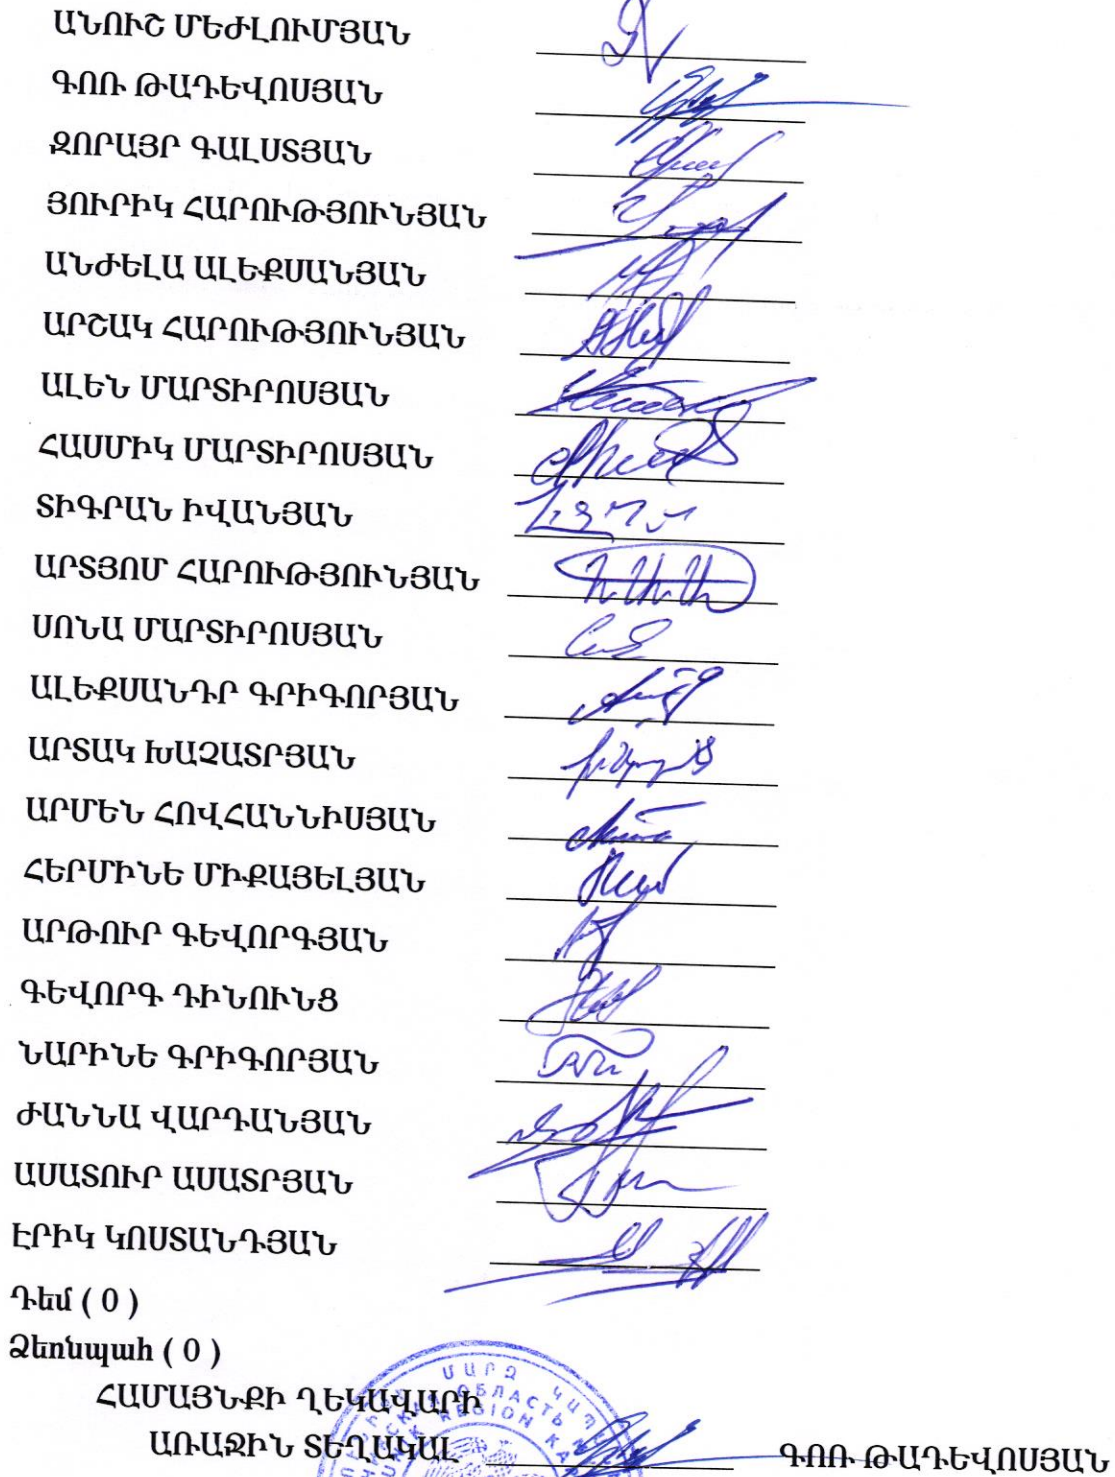 ԱՆՈՒՇ ՄԵԺԼՈՒՄՅԱՆ
ԳՈՌ ԹԱԴԵՎՈՍՅԱՆ
ԶՈՐԱՅՐ ԳԱԼՍՏՅԱՆ
ՅՈՒՐԻԿ ՀԱՐՈՒԹՅՈՒՆՅԱՆ
ԱՆԺԵԼԱ ԱԼԵՔՍԱՆՅԱՆ
ԱՐՇԱԿ ՀԱՐՈՒԹՅՈՒՆՅԱՆ
ԱԼԵՆ ՄԱՐՏԻՐՈՍՅԱՆ
ՀԱՍՄԻԿ ՄԱՐՏԻՐՈՍՅԱՆ
ՏԻԳՐԱՆ ԻՎԱՆՅԱՆ
ԱՐՏՅՈՄ ՀԱՐՈՒԹՅՈՒՆՅԱՆ
ՍՈՆԱ ՄԱՐՏԻՐՈՍՅԱՆ
ԱԼԵՔՍԱՆԴՐ ԳՐԻԳՈՐՅԱՆ
ԱՐՏԱԿ ԽԱՉԱՏՐՅԱՆ
ԱՐՄԵՆ ՀՈՎՀԱՆՆԻՍՅԱՆ
ՀԵՐՄԻՆԵ ՄԻՔԱՅԵԼՅԱՆ
ԱՐԹՈՒՐ ԳԵՎՈՐԳՅԱՆ
ԳԵՎՈՐԳ ԴԻՆՈՒՆՑ
ՆԱՐԻՆԵ ԳՐԻԳՈՐՅԱՆ
ԺԱՆՆԱ ՎԱՐԴԱՆՅԱՆ
ԱՍԱՏՈՒՐ ԱՍԱՏՐՅԱՆ
ԷՐԻԿ ԿՈՍՏԱՆԴՅԱՆ
Դեմ ( 0 )
Ձեռնպահ ( 0 )
ՀԱՄԱՅՆՔԻ ՂԵԿԱՎԱՐԻ
ԱՌԱՋԻՆ ՏԵՂԱԿԱԼ ԳՈՌ ԹԱԴԵՎՈՍՅԱՆ
ՄԱՐԶ
ОБЛАСТЬ
REGION